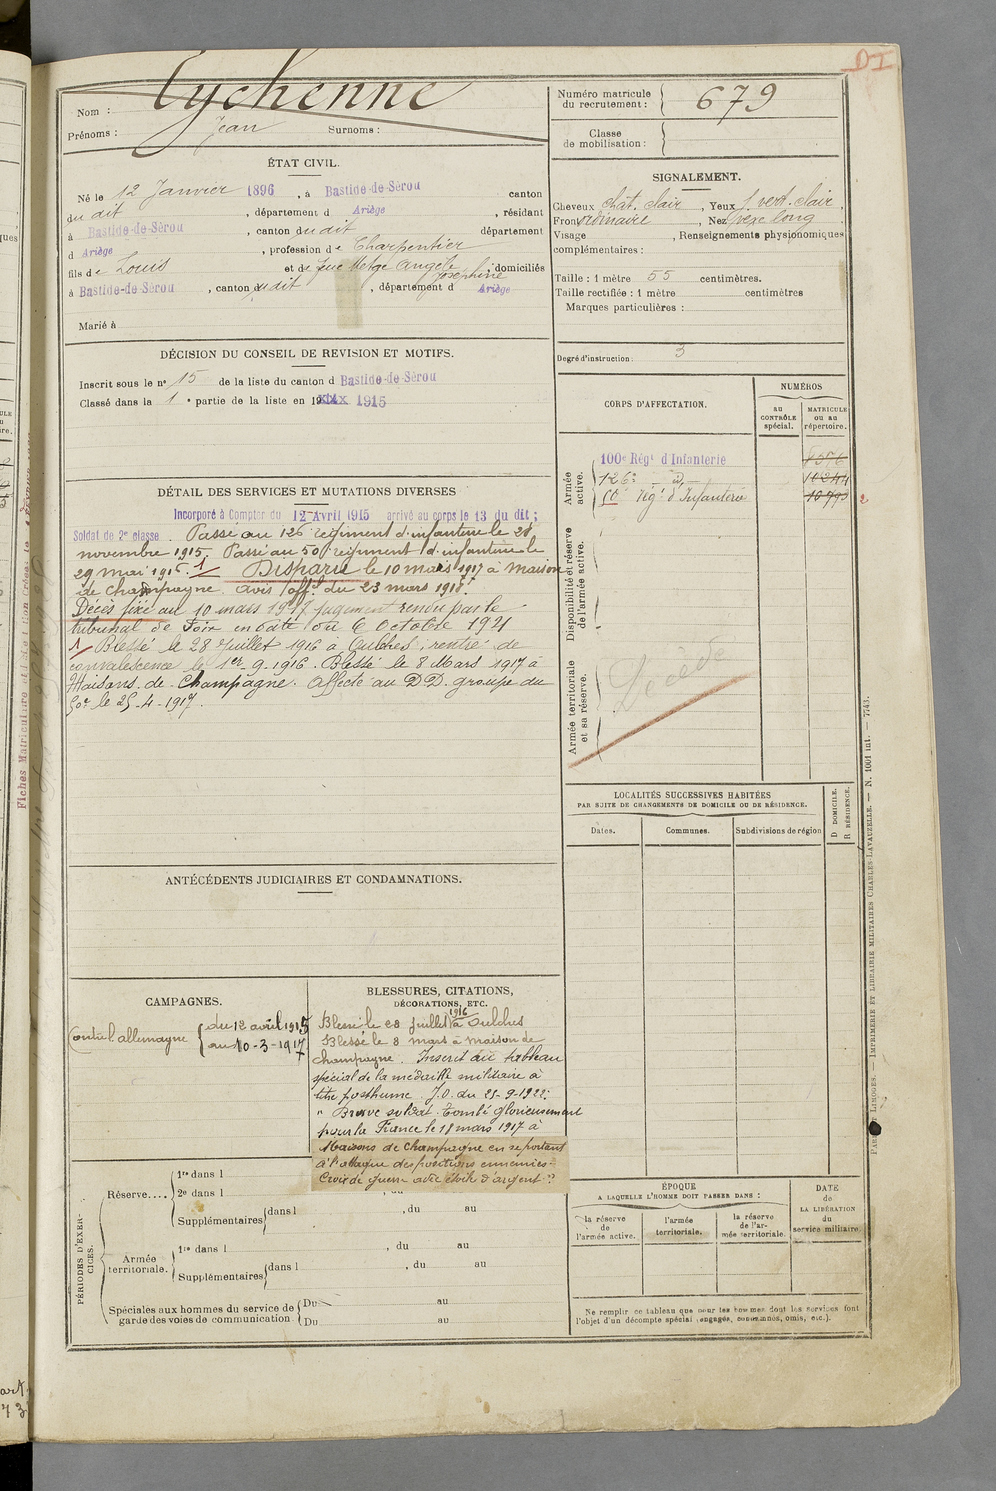 DI
Nom : Eychenne
Prénoms : Jean Surnoms :
Numéro matricule
du recrutement : 679
Classe
de mobilisation :
ÉTAT CIVIL.
Né le 12 Janvier 1896, à Bastide-de-Sérou canton
du dit, département d Ariège, résidant
à Bastide-de-Sérou, canton du dit département
d Ariège, profession de Charpentier
fils de Louis et de feue Metge Angèle Joséphine, domiciliés
à Bastide-de-Sérou, canton du dit, département d Ariège
Marié à
SIGNALEMENT.
Cheveux chât. clair, Yeux vert. clair,
Front ordinaire, Nez long
Visage , Renseignements physionomiques
complémentaires :
Taille : 1 mètre 55 centimètres.
Taille rectifiée : 1 mètre centimètres
Marques particulières :
Degré d'instruction : 3
DÉCISION DU CONSEIL DE REVISION ET MOTIFS.
Inscrit sous le nº 15 de la liste du canton d Bastide-de-Sérou
Classé dans la 1 º partie de la liste en 19 1915
CORPS D'AFFECTATION.
NUMÉROS
AU CONTRÔLE spécial.
MATRICULE ou au répertoire.
Armée active.
100e Régt d'Infanterie
126e d
10244
50 rég. d'Infanterie 10793
Disponibilité et réserve de l'armée active.
Armée territoriale et sa réserve.
Décédé
DÉTAIL DES SERVICES ET MUTATIONS DIVERSES
Incorporé à Compter du 12 Avril 1915 arrivé au corps le 13 du dit ;
Soldat de 2e classe. Passé au 126 régiment d'infanterie le 28
novembre 1915. Passé au 50 régiment d'infanterie le
29 mai 1916. 1/ Disparu le 10 mars 1917 à maison
de champagne. avis off. du 23 mars 1918.
Décès fixé au 10 mars 1917 jugement rendu par le
tribunal de Foix en date du 6 Octobre 1921
1/ Blessé le 28 Juillet 1916 à Oulches, rentré de
convalescence le 1er. 9. 1916. Blessé le 8 Mars 1917 à
Maisons de Champagne. Affecté au D.D. groupe du
50e le 25-4-1917.
LOCALITÉS SUCCESSIVES HABITÉES
PAR SUITE DE CHANGEMENTS DE DOMICILE OU DE RÉSIDENCE.
Dates. Communes. Subdivisions de région
D DOMICILE.
R RÉSIDENCE.
ANTÉCÉDENTS JUDICIAIRES ET CONDAMNATIONS.
CAMPAGNES.
Contre l'allemagne du 12 avril 1915
au 10-3-1917
BLESSURES, CITATIONS,
DÉCORATIONS, ETC.
Blessé le 28 juillet 1916 à Oulches
Blessé le 8 mars à maison de
champagne. Inscrit au tableau
spécial de la médaille militaire à
titre posthume. J.O. du 25-9-1922:
" Brave soldat. Tombé glorieusement
pour la France le 18 mars 1917 à
Maisons de Champagne en se portant
à l'attaque des positions ennemies.
Croix de guerre avec étoile d'argent."
PÉRIODES D'EXERCICES.
Réserve....
1re dans l
2e dans l , du au
Supplémentaires dans l , du au
Armée territoriale.
1re dans l , du au
Supplémentaires dans l , du au
Spéciales aux hommes du service de
garde des voies de communication
Du au
Du au
ÉPOQUE
A LAQUELLE L'HOMME DOIT PASSER DANS :
la réserve de l'armée active.
l'armée territoriale.
la réserve de l'armée territoriale.
DATE
de
LA LIBÉRATION
du
service militaire.
Ne remplir ce tableau que pour les hommes dont les services font
l'objet d'un décompte spécial (engagés, condamnés, omis, etc.).
LIMOGES. — IMPRIMERIE ET LIBRAIRIE MILITAIRES CHARLES-LAVAUZELLE. — N. 1001 int. — 7743.